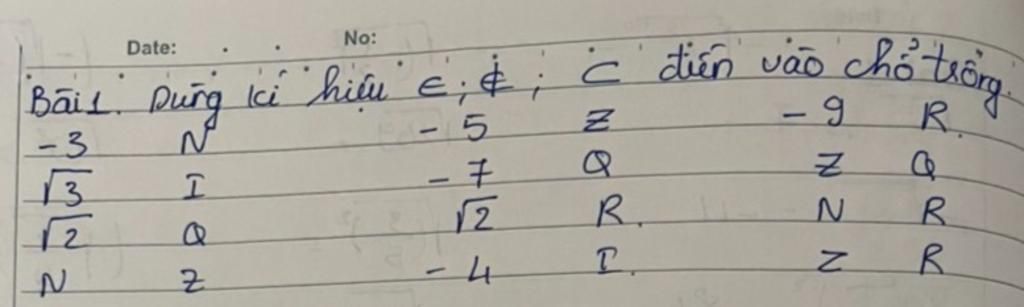 Date: No:
Bài 1. Dùng kí hiệu ∈; ∉; ⊂ điền vào chỗ trống.
-3 N -5 Z -9 R.
√3 I -7 Q Z Q
√2 Q √2 R. N R
N Z -4 I. Z R